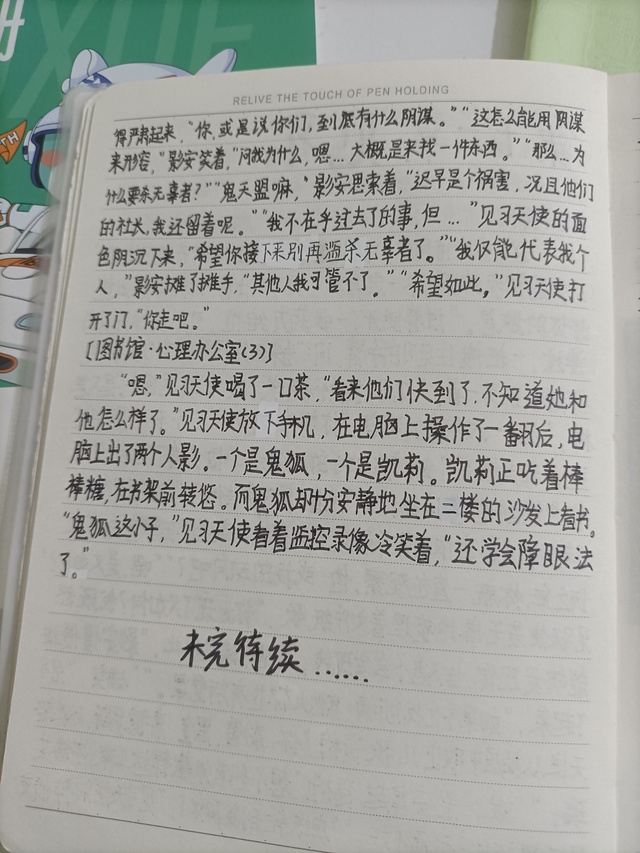 RELIVE THE TOUCH OF PEN HOLDING
得严肃起来，“你，或是说你们，到底有什么阴谋。”“这怎么能用阴谋
来形容，”影安笑着，“问我为什么，嗯…大概是来找一件东西。”“那么…为
什么要杀无辜者？”“鬼天盟嘛，”影安思索着，“迟早是个祸害，况且他们
的社长，我还留着呢。”“我不在乎过去了的事，但…”见习天使的面
色阴沉下来，“希望你接下来别再滥杀无辜者了。”“我仅能代表我个
人，”影安摊了摊手，“其他人我可管不了。”“希望如此。”见习天使打
开了门，“你走吧。”
[图书馆·心理办公室(3)]
“嗯，”见习天使喝了一口茶，“看来他们快到了，不知道她和
他怎么样了。”见习天使放下手机，在电脑上操作了一翻后，电
脑上出了两个人影。一个是鬼狐，一个是凯莉。凯莉正吃着棒
棒糖，在书架前转悠。而鬼狐却十分安静地坐在二楼的沙发上看书。
“鬼狐这小子，”见习天使看着监控录像冷笑着，“还学会障眼法
了。”
未完待续……